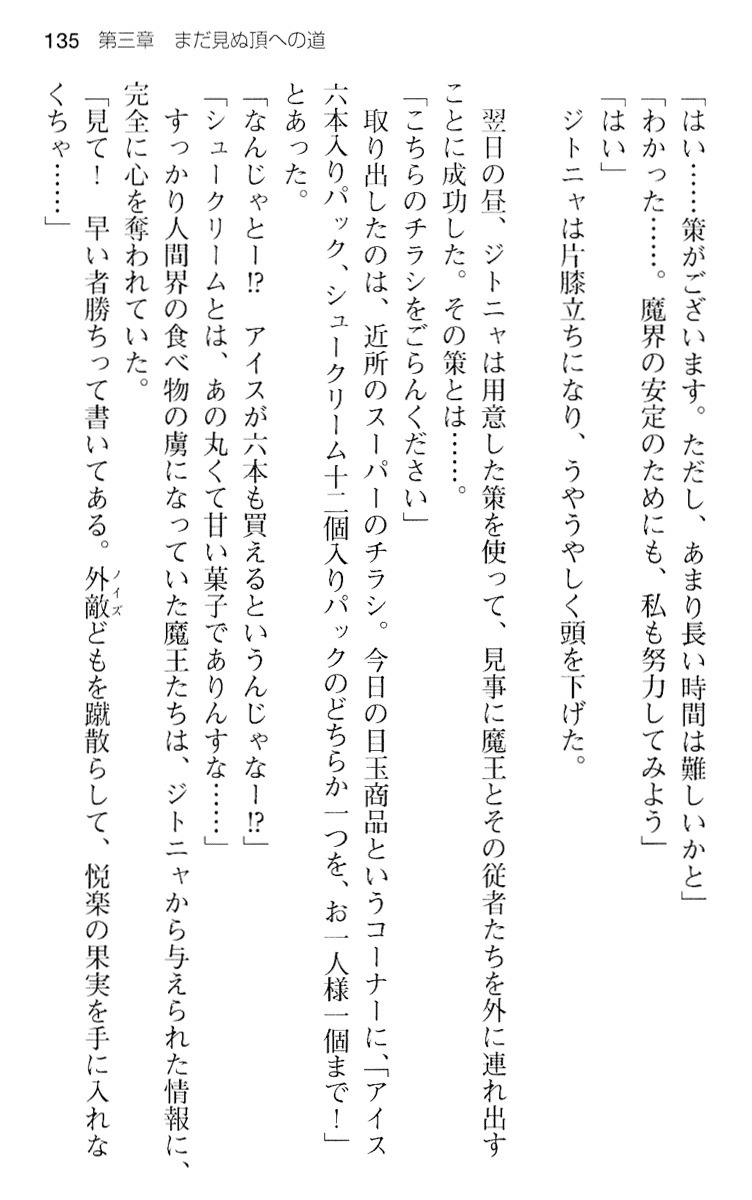 135　第三章　まだ見ぬ頂への道
「はい……策がございます。ただし、あまり長い時間は難しいかと」
「わかった……。魔界の安定のためにも、私も努力してみよう」
「はい」
　ジトニャは片膝立ちになり、うやうやしく頭を下げた。
　翌日の昼、ジトニャは用意した策を使って、見事に魔王とその従者たちを外に連れ出す
ことに成功した。その策とは……。
「こちらのチラシをごらんください」
　取り出したのは、近所のスーパーのチラシ。今日の目玉商品というコーナーに、「アイス
六本入りパック、シュークリーム十二個入りパックのどちらか一つを、お一人様一個まで！」
とあった。
「なんじゃとー!?　アイスが六本も買えるというんじゃなー!?」
「シュークリームとは、あの丸くて甘い菓子でありんすな……」
　すっかり人間界の食べ物の虜になっていた魔王たちは、ジトニャから与えられた情報に、
完全に心を奪われていた。
「見て！　早い者勝ちって書いてある。外敵ノイズどもを蹴散らして、悦楽の果実を手に入れな
くちゃ……」